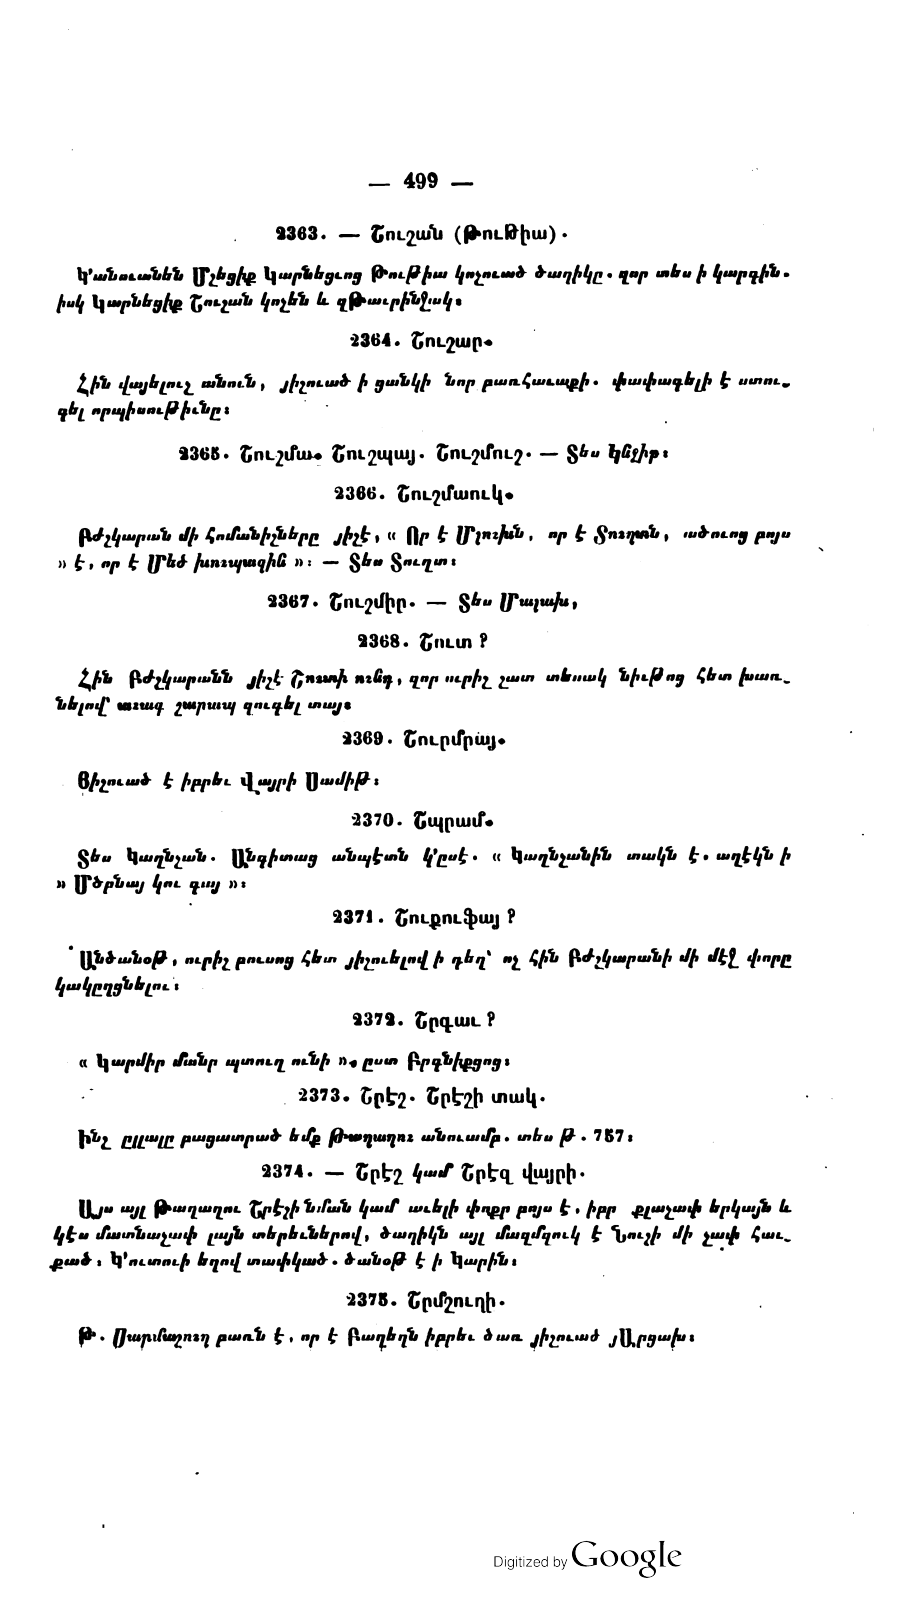 — 499 —
2363. — Շուշան (Թութիա) .
Կ՚անուանեն Մշեցիք Կարնեցւոց Թութիա կոչուած ծաղիկը. զոր տես ի կարգին.
իսկ Կարնեցիք Շուշան կոչեն և զԹաւրինջակ։
2364. Շուշար.
Հին վայելուչ անուն, յիշուած ի ցանկի նոր բառհաւաքի. փափագելի է ստու֊
գել որպիսութիւնը։
2365. Շուշմա. Շուշպայ. Շուշմուշ. — Տես Կնջիթ։
2366. Շուշմաուկ.
Բժշկարան մի հոմանիշները յիշէ, « Որ է Մլուխն, որ է Տուղտն, ածուոց բոյս
» է, որ է Մեծ խուպազին »։ — Տես Տուղտ։
2367. Շուշմիր. — Տես Մալախ,
2368. Շուտ ?
Հին Բժշկարանն յիշէ Շուտի ունդ, զոր ուրիշ շատ տեսակ նիւթոց հետ խառ֊
նելով՝ աւագ շարապ զուգել տայ։
2369. Շուրմրայ.
Յիշուած է իբրեւ Վայրի Սամիթ։
2370. Շպրամ.
Տես Կաղնչան. Անգիտաց անպէտն կ՚ըսէ. « Կաղնչանին տակն է. աղէկն ի
» Մծրնայ կու գայ »։
2371. Շուքուֆայ ?
Անծանօթ, ուրիշ բուսոց հետ յիշուելով ի դեղ՝ ոչ հին Բժշկարանի մի մէջ փորը
կակըղցնելու։
2372. Շրգաւ ?
« Կարմիր մանր պտուղ ունի ». ըստ Բրգնիքցոց։
2373. Շրէշ. Շրէշի տակ.
Ինչ ըլլալը բացատրած եմք Թաղաղու անուամբ. տես Թ. 757։
2374. — Շրէշ կամ Շրէզ վայրի.
Այս այլ Թաղաղու Շրէշի նման կամ աւելի փոքր բոյս է, իբր քլաչափ երկայն և
կէս մատնաչափ լայն տերեւներով, ծաղիկն այլ մազմզուկ է Նուշի մի չափ հաւ֊
քած։ Կ՚ուտուի եղով տափկած. ծանօթ է ի Կարին։
2375. Շրմշուղի.
Թ. Սարմաշուղ բառն է, որ է Բաղեղն իբրեւ ծառ յիշուած յԱրցախ։
Digitized by Google